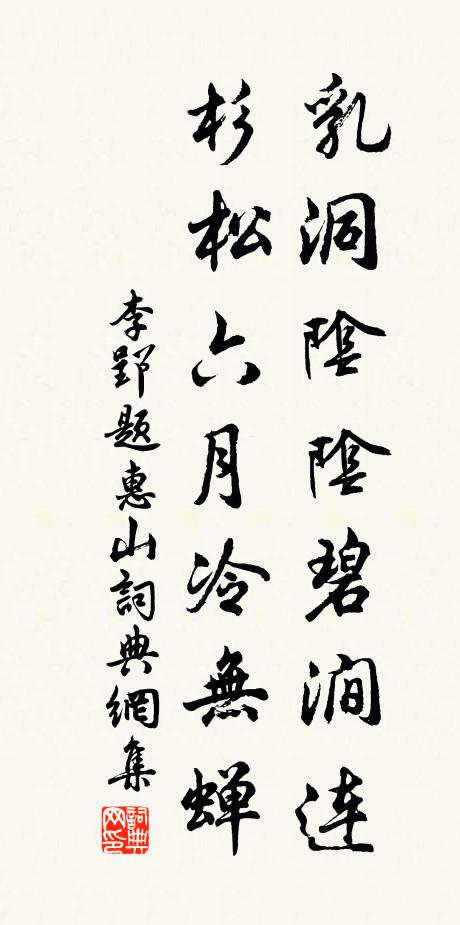 乳洞陰陰碧澗連
杉松六月冷無蝉
李郢题惠山詞典網集
詞典网印